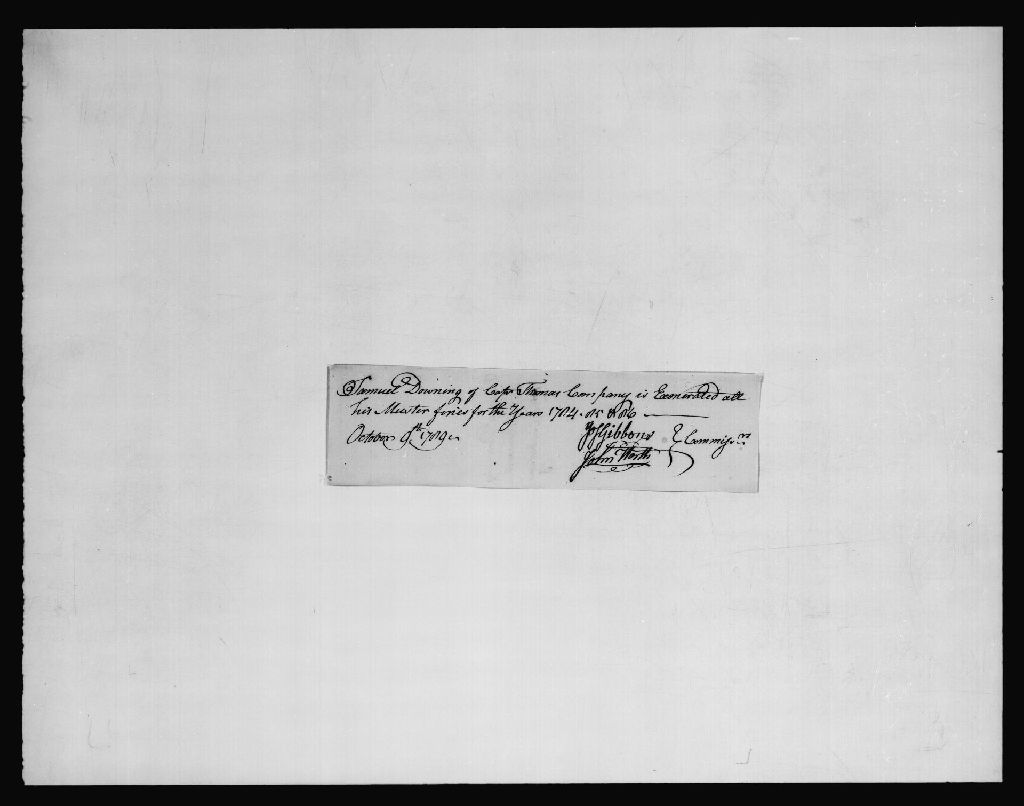 Samuel Downing of Capt Thomas Company is Exonerated all
his Muster fines for the Years 1784. 85 & 86
October 9th 1789
Js Gibbons } Commissrs
John Worth